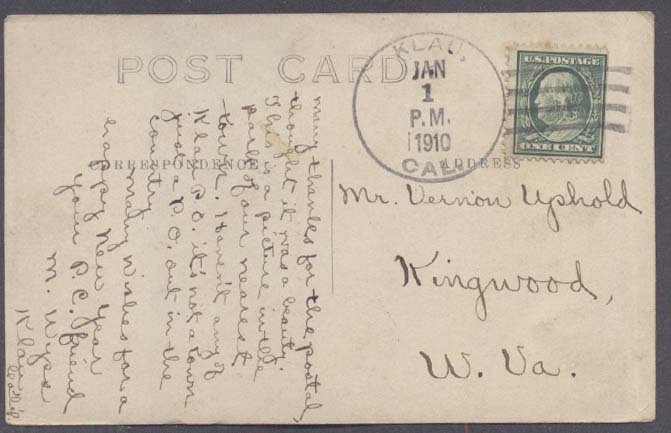 POST CARD
KLAU,
JAN
1
P.M.
1910
CALI.
U.S. POSTAGE
ONE CENT
CORRESPONDENCE
ADDRESS
Many thanks for the postal,
thought it was a beauty.
This is a picture in the
park of our nearest
town. Haven't any of
Klau P.O. it's not a town
just a P.O. out in the
country.
Many wishes for a
happy New Year
your P.C. friend
M. Wyss
Klau
Calif.
Mr. Vernon Uphold
Kingwood,
W. Va.